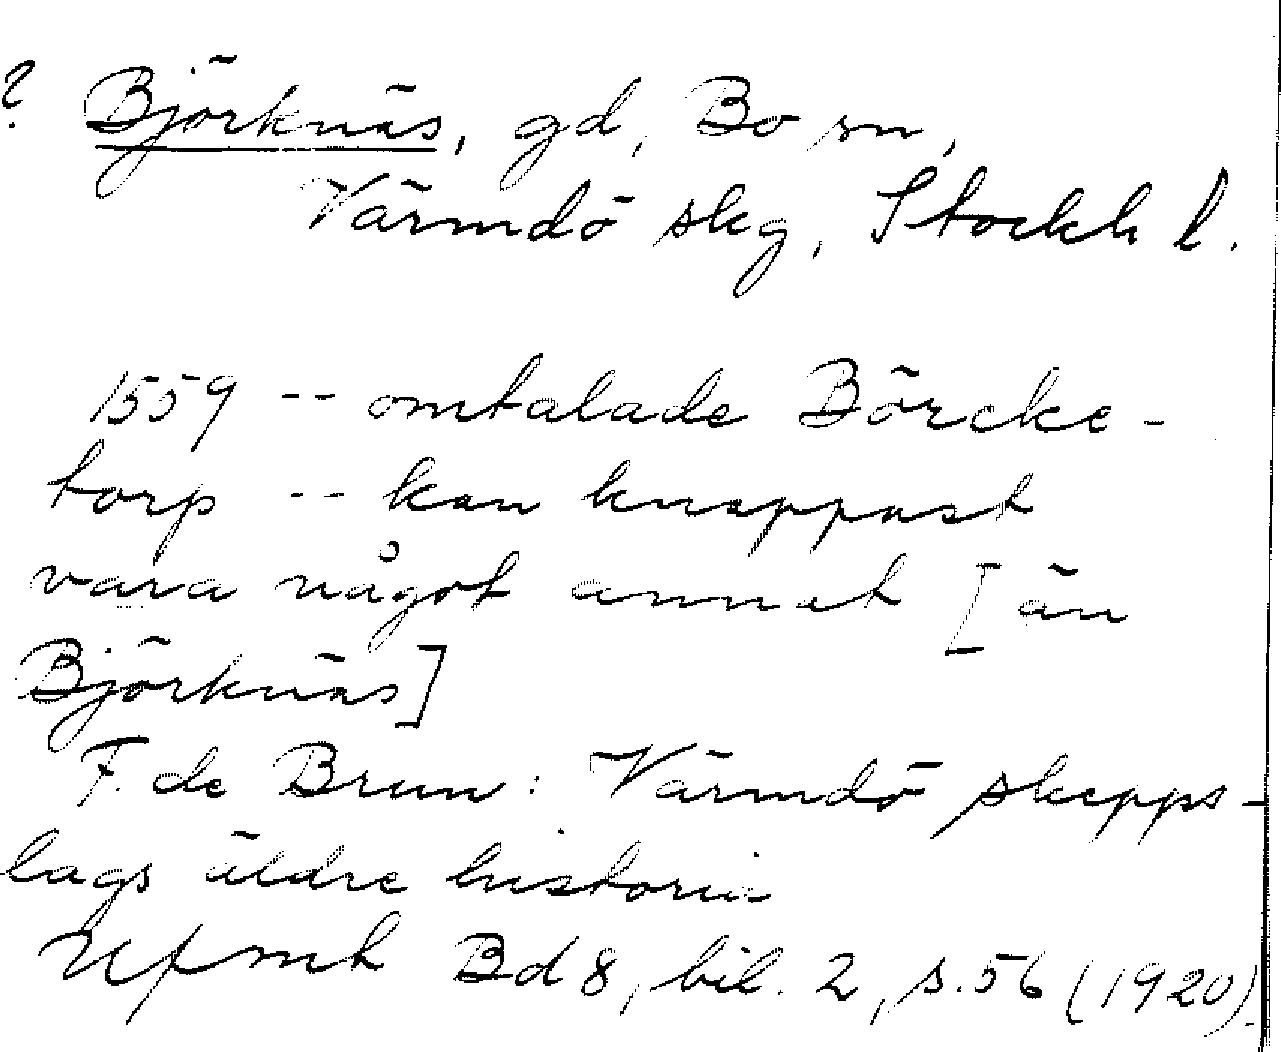 ? Björknäs, gd, Bo sn,
Värmdö skg, Stockh l.
1559 -- omtalade Börcke-
torp -- kan knappast
vara något annat [än
Björknäs]
F. de Brun: Värmdö skepps-
lags äldre historia
Upfmt Bd 8, bil. 2, s. 56 (1920).